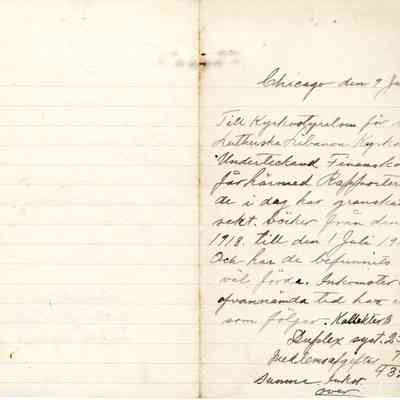 Chicago den 9 Ju
Till Kyrkostyrelsen för
Lutherska Libanon Kyrk
Undertecknad Finansko
får härmed Rapportera
de i dag har granska
sekt. böcker från den
1913. till den 1 Juli 19
Och har de befunnits
väl förda. Inkomster
ofvannämda tid har
som följer. Kollekter $
Duplex syst. 2
Medlemsafgifter 7
Summa Inkst. 932
over